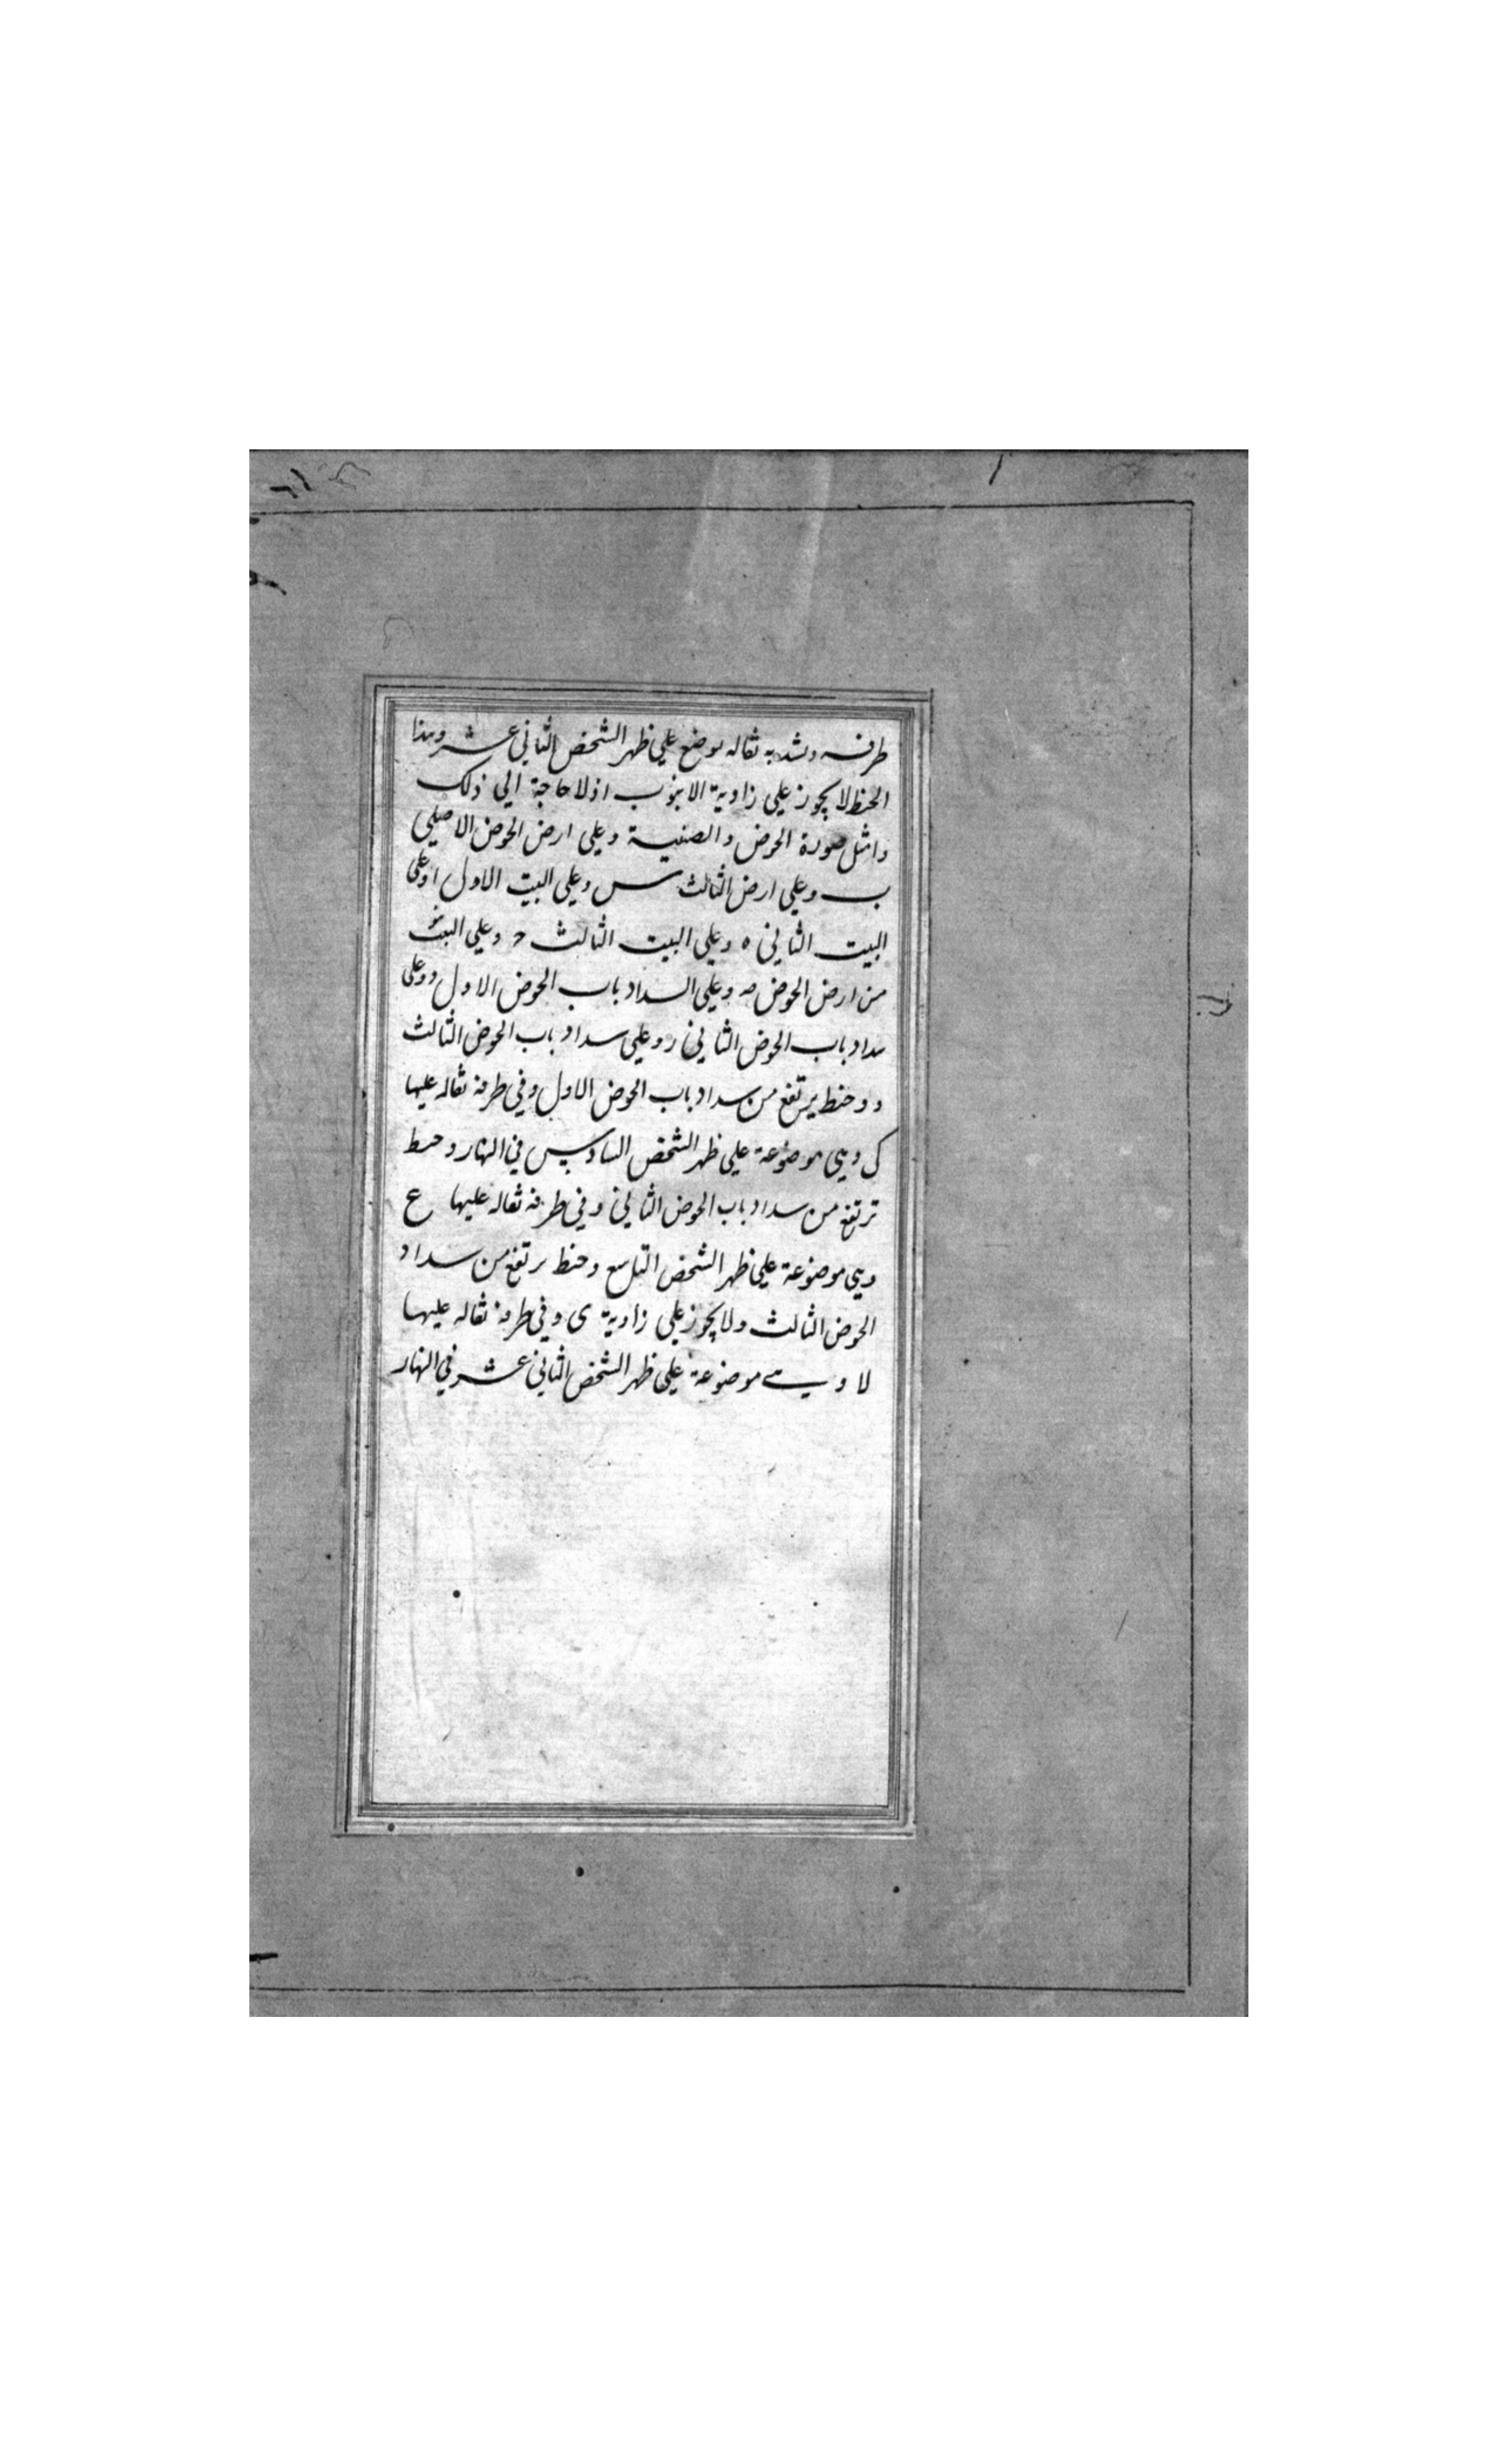 طرفه ويشد به ثقاله يوضع علي ظهر الشخص الثاني عشر وهذا
الخيط لا يجوز علي زاوية الانبوب اذ لا حاجة الي ذلك
وامثل صورة الحوض والصنية وعلي ارض الحوض الاصلي
ب وعلي ارض الثالث س وعلي البيت الاول ا وعلي
البيت الثاني ه وعلي البيت الثالث ح وعلي
من ارض الحوض صه وعلي السداد باب الحوض الاول د وعلي
سداد باب الحوض الثاني ر وعلي سداد باب الحوض الثالث
و وخيط يرتفع من سداد باب الحوض الاول وفي طرفه ثقاله عليها
ك وهي موضوعة علي ظهر الشخص السادس في النهار وخيط
ترتفع من سداد باب الحوض الثاني وفي طرفه ثقاله عليها ع
وهي موضوعة علي ظهر الشخص التاسع وخيط يرتفع من سداد
الحوض الثالث ولا يجوز علي زاوية ى وفي طرفه ثقاله عليها
لا وهي موضوعة علي ظهر الشخص الثاني عشر في النهار